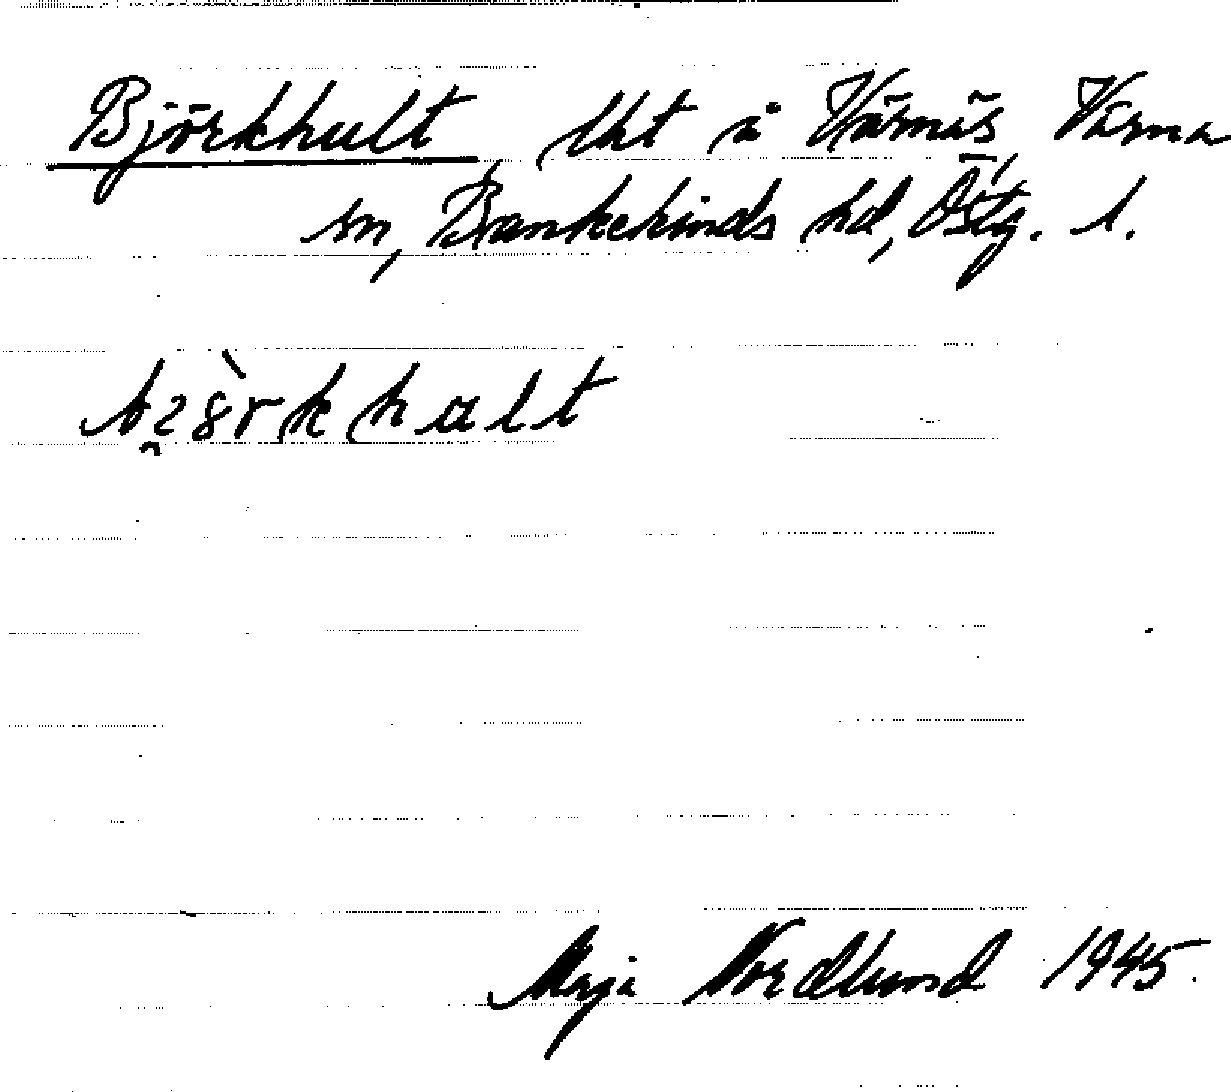 Björkhult, lht å Värnäs, Värna
sn, Bankekinds hd, Östg. l.
Maja Nordlund 1945.